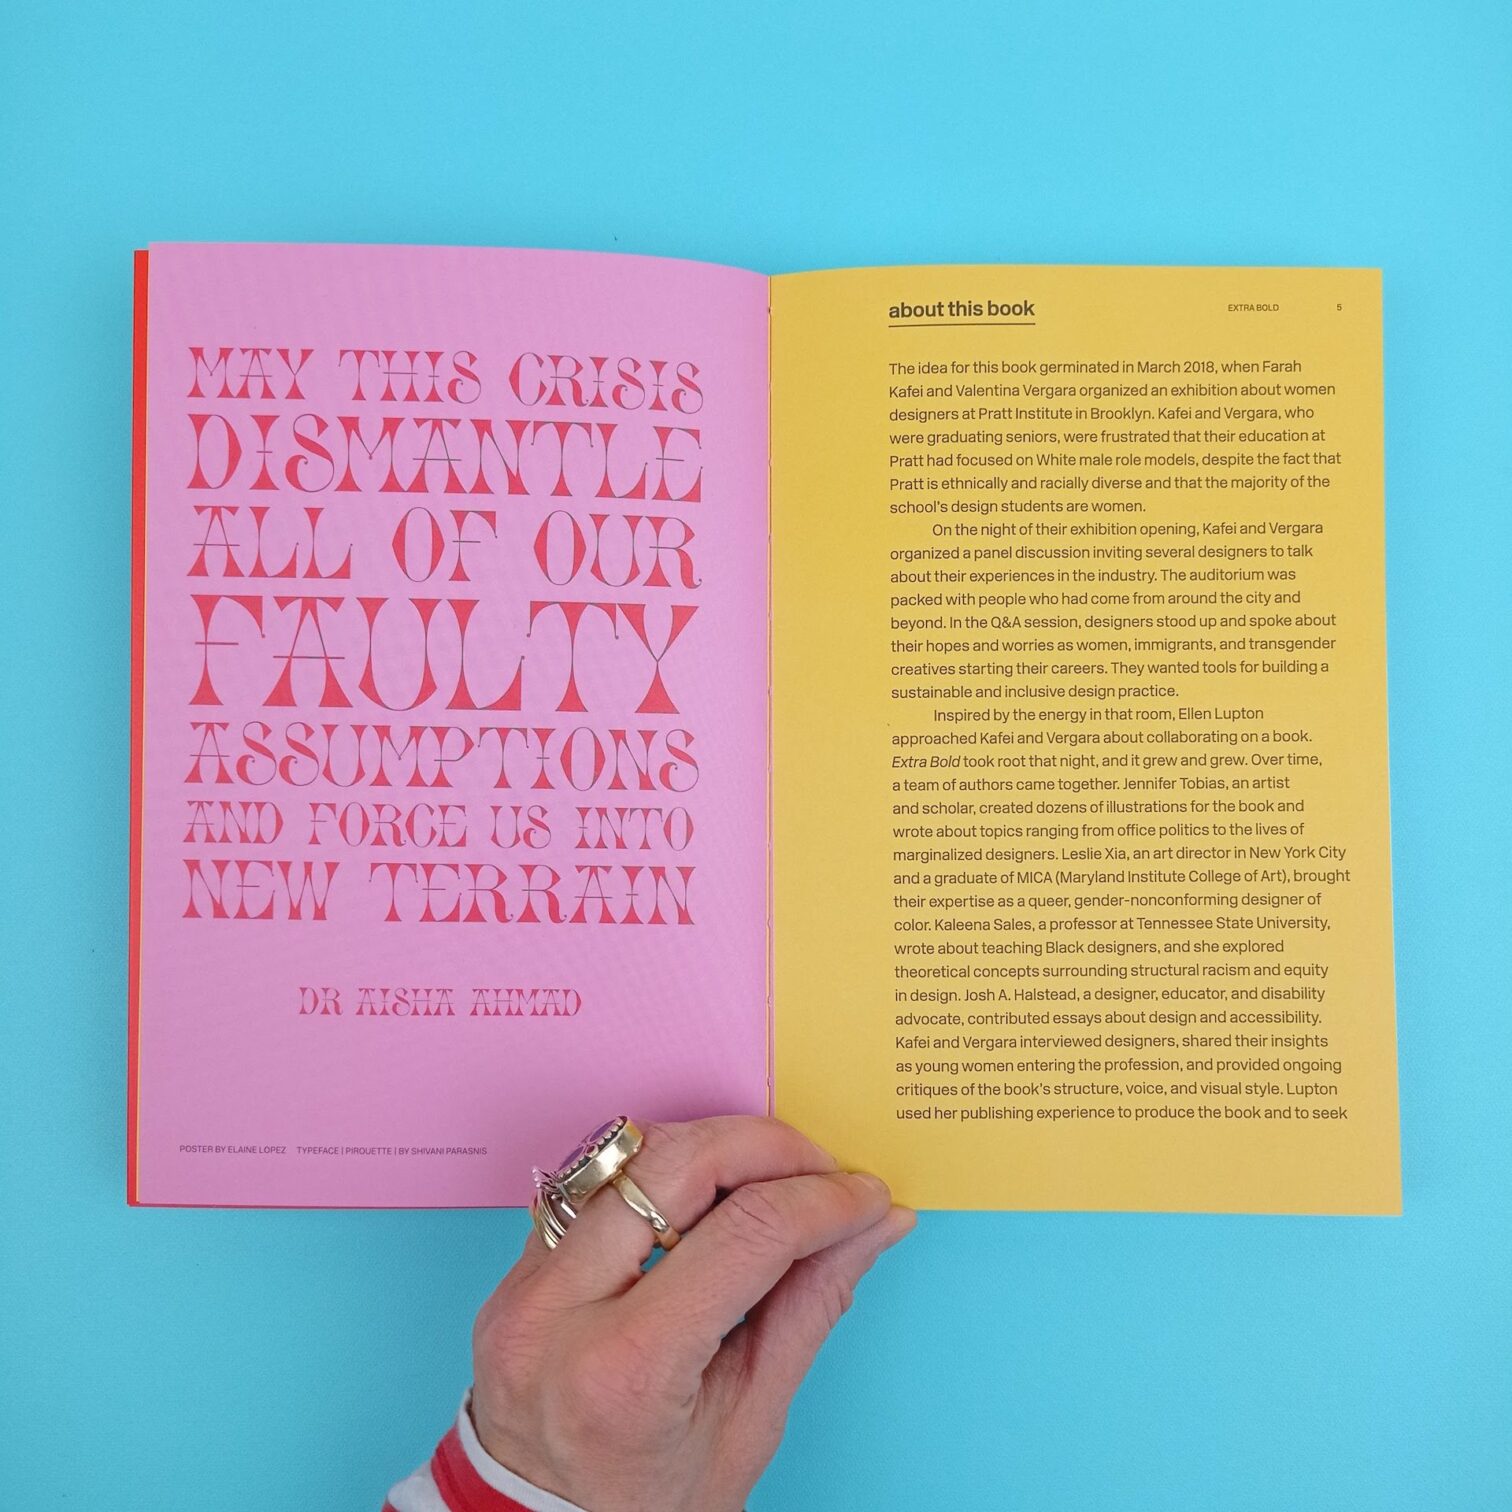 MAY THIS CRISIS
DISMANTLE
ALL OF OUR
FAULTY
ASSUMPTIONS
AND FORCE US INTO
NEW TERRAIN
DR AISHA AHMAD
POSTER BY ELAINE LOPEZ TYPEFACE | PIROUETTE | BY SHIVANI PARASNIS
about this book
EXTRA BOLD 5
The idea for this book germinated in March 2018, when Farah
Kafei and Valentina Vergara organized an exhibition about women
designers at Pratt Institute in Brooklyn. Kafei and Vergara, who
were graduating seniors, were frustrated that their education at
Pratt had focused on White male role models, despite the fact that
Pratt is ethnically and racially diverse and that the majority of the
school's design students are women.
On the night of their exhibition opening, Kafei and Vergara
organized a panel discussion inviting several designers to talk
about their experiences in the industry. The auditorium was
packed with people who had come from around the city and
beyond. In the Q&A session, designers stood up and spoke about
their hopes and worries as women, immigrants, and transgender
creatives starting their careers. They wanted tools for building a
sustainable and inclusive design practice.
Inspired by the energy in that room, Ellen Lupton
approached Kafei and Vergara about collaborating on a book.
Extra Bold took root that night, and it grew and grew. Over time,
a team of authors came together. Jennifer Tobias, an artist
and scholar, created dozens of illustrations for the book and
wrote about topics ranging from office politics to the lives of
marginalized designers. Leslie Xia, an art director in New York City
and a graduate of MICA (Maryland Institute College of Art), brought
their expertise as a queer, gender-nonconforming designer of
color. Kaleena Sales, a professor at Tennessee State University,
wrote about teaching Black designers, and she explored
theoretical concepts surrounding structural racism and equity
in design. Josh A. Halstead, a designer, educator, and disability
advocate, contributed essays about design and accessibility.
Kafei and Vergara interviewed designers, shared their insights
as young women entering the profession, and provided ongoing
critiques of the book's structure, voice, and visual style. Lupton
used her publishing experience to produce the book and to seek